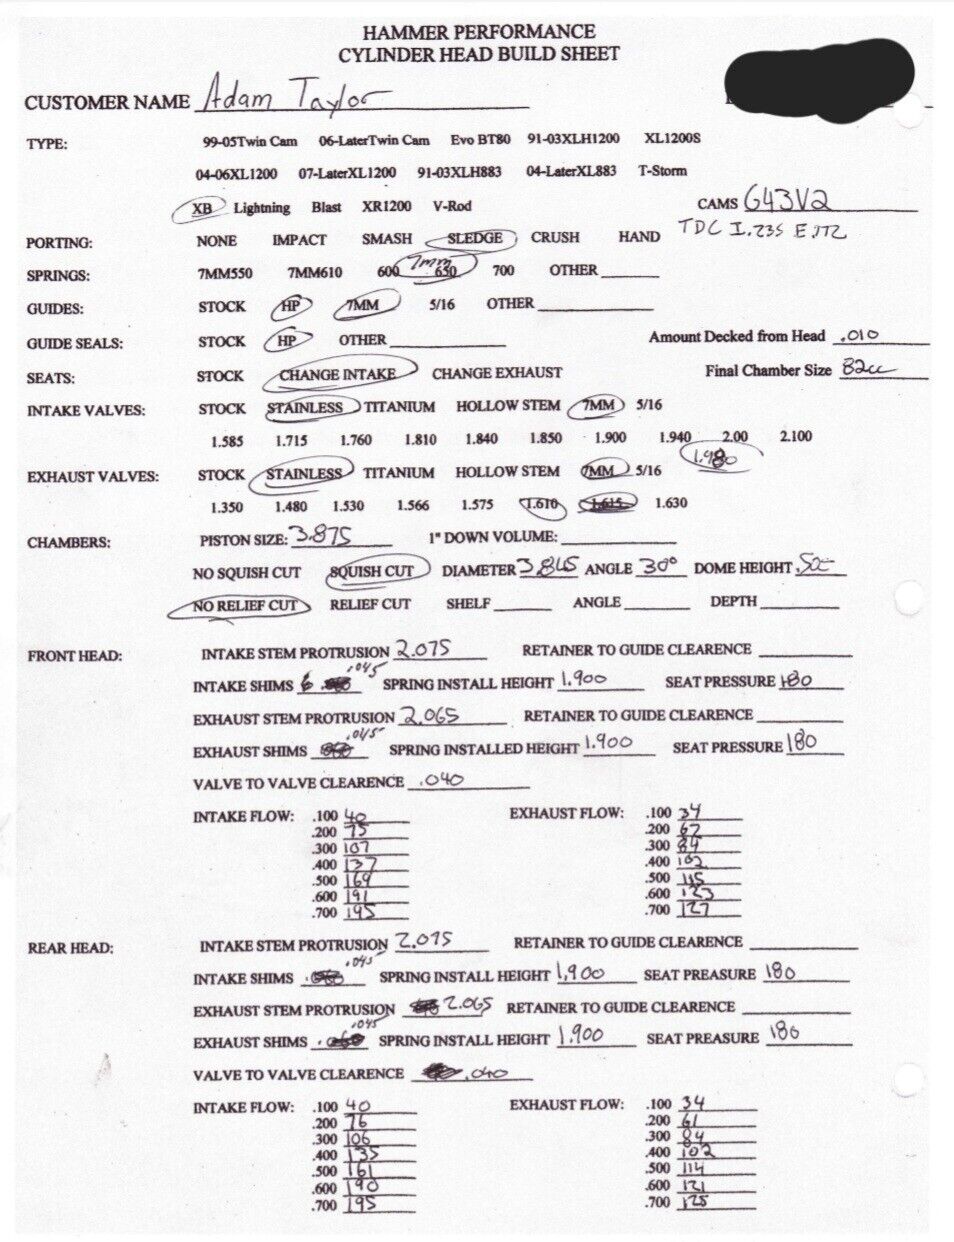 HAMMER PERFORMANCE
CYLINDER HEAD BUILD SHEET
CUSTOMER NAME Adam Taylor
TYPE: 99-05Twin Cam 06-LaterTwin Cam Evo BT80 91-03XLH1200 XL1200S
04-06XL1200 07-LaterXL1200 91-03XLH883 04-LaterXL883 T-Storm
XB Lightning Blast XR1200 V-Rod CAMS 643V2
PORTING: NONE IMPACT SMASH SLEDGE CRUSH HAND TDC I .235 E
SPRINGS: 7MM550 7MM610 600 7mm 650 700 OTHER
GUIDES: STOCK HP 7MM 5/16 OTHER
GUIDE SEALS: STOCK HP OTHER Amount Decked from Head .010
SEATS: STOCK CHANGE INTAKE CHANGE EXHAUST Final Chamber Size 82cc
INTAKE VALVES: STOCK STAINLESS TITANIUM HOLLOW STEM 7MM 5/16
1.585 1.715 1.760 1.810 1.840 1.850 1.900 1.940 2.00 2.100
1.980
EXHAUST VALVES: STOCK STAINLESS TITANIUM HOLLOW STEM 7MM 5/16
1.350 1.480 1.530 1.566 1.575 1.610 1.615 1.630
CHAMBERS: PISTON SIZE: 3.875 1" DOWN VOLUME:
NO SQUISH CUT SQUISH CUT DIAMETER 3.845 ANGLE 30° DOME HEIGHT
NO RELIEF CUT RELIEF CUT SHELF ANGLE DEPTH
FRONT HEAD: INTAKE STEM PROTRUSION 2.075 RETAINER TO GUIDE CLEARENCE
INTAKE SHIMS .045 SPRING INSTALL HEIGHT 1.900 SEAT PRESSURE 180
EXHAUST STEM PROTRUSION 2.065 RETAINER TO GUIDE CLEARENCE
EXHAUST SHIMS .045 SPRING INSTALLED HEIGHT 1.900 SEAT PRESSURE 180
VALVE TO VALVE CLEARENCE .040
INTAKE FLOW: .100 40 EXHAUST FLOW: .100 34
.200 75 .200 62
.300 107 .300 84
.400 137 .400 102
.500 169 .500 115
.600 191 .600 123
.700 195 .700 127
REAR HEAD: INTAKE STEM PROTRUSION 2.075 RETAINER TO GUIDE CLEARENCE
INTAKE SHIMS .045 SPRING INSTALL HEIGHT 1,900 SEAT PREASURE 180
EXHAUST STEM PROTRUSION 2.065 RETAINER TO GUIDE CLEARENCE
EXHAUST SHIMS .045 SPRING INSTALL HEIGHT 1.900 SEAT PRESSURE 180
VALVE TO VALVE CLEARENCE .040
INTAKE FLOW: .100 40 EXHAUST FLOW: .100 34
.200 76 .200 61
.300 106 .300 84
.400 135 .400 102
.500 161 .500 114
.600 190 .600 121
.700 195 .700 125